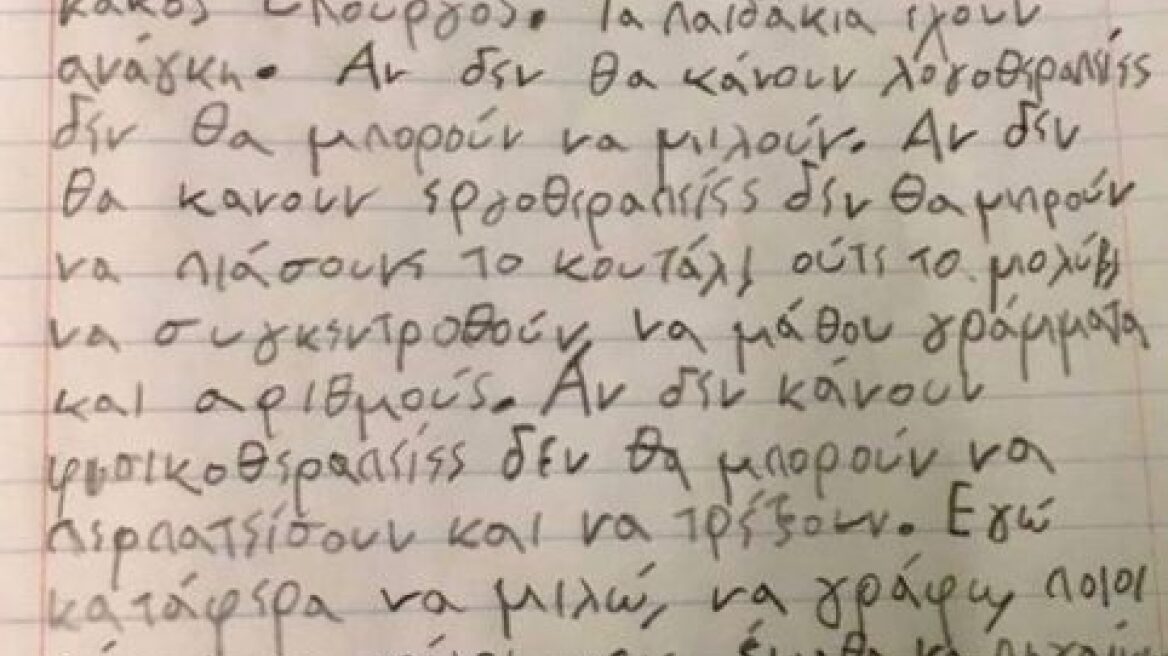 κακός Υπουργός. Τα παιδάκια έχουν
ανάγκη. Αν δεν θα κάνουν λογοθεραπείες
δεν θα μπορούν να μιλούν. Αν δεν
θα κανουν εργοθεραπείες δεν θα μπρούν
να πιάσουν το κουτάλι ούτε το μολύβι,
να συγκεντροθούν, να μάθου γράμματα
και αριθμούς. Αν δεν κάνουν
φυσικοθεραπείες δεν θα μπορούν να
περπατείσουν και να τρέξουν. Εγώ
κατάφερα να μιλώ, να γράφω, ποιοι